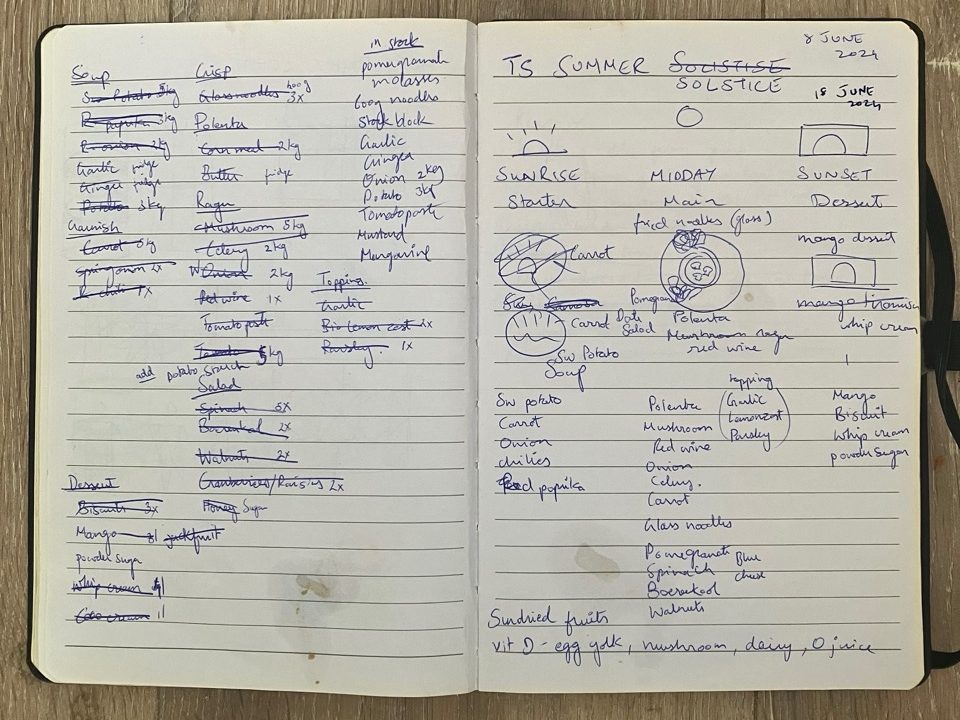 in stock
Soup
Crisp
pomegranate
molasses
Sw Potato 5kg
Glassnoodles 400g 3x
600g noodles
R paprika 3kg
Polenta
Stock block
R onion 2kg
Corn meal 2kg
Garlic
Garlic fridge
Butter fridge
Ginger
Ginger fridge
Onion 2kg
Potato 3kg
Ragu
Potato 3kg
Tomatopaste
Garnish
Mushroom 5kg
Mustard
Carrot 5kg
Celery 2kg
Margarine
Springonion 2x
W Onion 2kg
Topping
R chili 1x
Red wine 1x
Garlic
Tomato paste
Bio lemon zest 2x
Tomato 5kg
Parsley 1x
add potato starch
Salad
Spinach 5x
Boerenkool 2x
Walnuts 2x
Dessert
Cranberries/Raisins 2x
Biscuits 3x
Honey Sugar
Mango 1 jackfruit
powder sugar
Whip cream 1
Coco cream 1l
8 JUNE
2024
TS SUMMER SOLISTISE
SOLSTICE
18 JUNE
2024
SUNRISE
MIDDAY
SUNSET
Starter
Main
Dessert
fried noodles (glass)
mango dessert
Carrot
Pomegrana
mango tiramisu
Carrot
Date
Salad
Polenta
whip cream
Mushroom ragu
red wine
Sw Potato
Soup
topping
Sw potato
Polenta
Garlic
Mango
Carrot
Mushroom
Lemonzest
Biscuit
Onion
Red wine
Parsley
Whip cream
chilies
Onion
powder sugar
Red paprika
Celery.
Carrot
Glass noodles
Pomegranate
Blue
Spinach
cheese
Boerenkool
Walnuts
Sundried fruits
vit D - egg yolk, mushroom, dairy, O juice